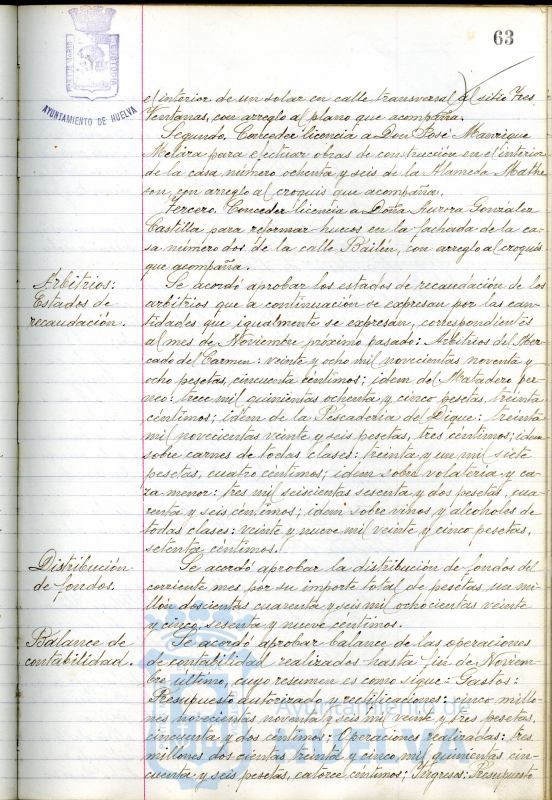 63
AYUNTAMIENTO DE HUELVA
el interior de un solar en calle transversal al sitio Tres
Ventanas, con arreglo al plano que acompaña.
Segundo. Conceder licencia a Don José Manrique
Melára para efectuar obras de construcción en el interior
de la casa número ochenta y seis de la Alameda Mathe
son, con arreglo al croquis que acompaña.
Tercero. Conceder licencia a Doña Aurora González
Castilla para reformar huecos en la fachada de la ca-
sa número dos de la calle Bailén, con arreglo al croquis
que acompaña.
Arbitrios:
Estados de
recaudación.
Se acordó aprobar los estados de recaudación de los
arbitrios que a continuación se expresan por las can-
tidades que igualmente se expresan, correspondientes
al mes de Noviembre próximo pasado: Arbitrios del Mer-
cado del Carmen: veinte y ocho mil novecientas noventa y
ocho pesetas, cincuenta céntimos; idem del Matadero per-
neo: trece mil quinientas ochenta y cinco pesetas, treinta
céntimos; idem de la Pescadería del Dique: treinta
mil novecientas veinte y seis pesetas, tres céntimos; idem
sobre carnes de todas clases: treinta y un mil siete
pesetas, cuatro céntimos; idem sobre volatería y ca-
za menor: tres mil seiscientas sesenta y dos pesetas, cua-
renta y seis céntimos; idem sobre vinos y alcoholes de
todas clases: veinte y nueve mil veinte y cinco pesetas,
setenta céntimos.
Distribución
de fondos.
Se acordó aprobar la distribución de fondos del
corriente mes por su importe total de pesetas un mi-
llón doscientas cuarenta y seis mil ochocientas veinte
y cinco, sesenta y nueve céntimos.
Balance de
contabilidad.
Se acordó aprobar balance de las operaciones
de contabilidad realizados hasta fin de Noviem-
bre último, cuyo resumen es como sigue: Gastos:
Presupuesto autorizado y rectificaciones: cinco millo-
nes novecientas noventa y seis mil veinte y tres pesetas,
cincuenta y dos céntimos; Operaciones realizadas: tres
millones dos cientas treinta y cinco mil quinientas cin-
cuenta y seis pesetas, catorce céntimos; Ingresos: Presupuesto
Ayuntamiento de
HUELVA